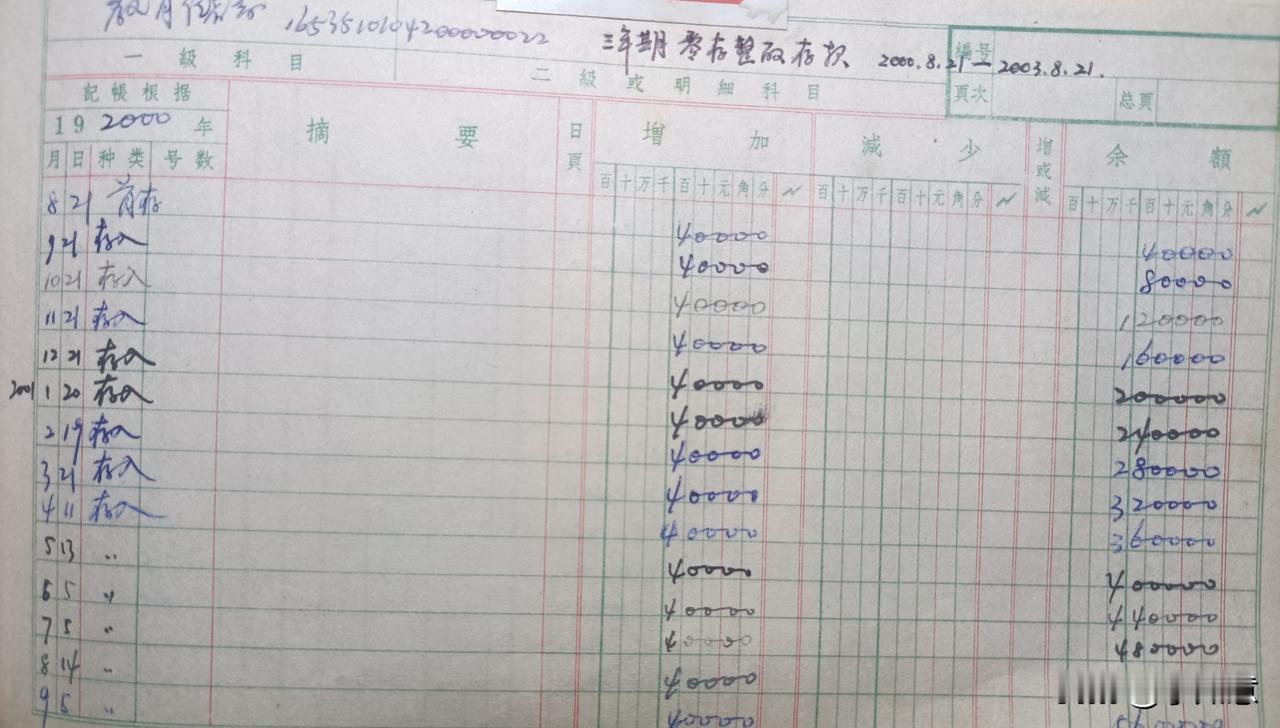 165351010420000022 三年期零存整取存款 2000.8.21—2003.8.21.
编号
一级科目 二级或明细科目
頁次 总頁
記帳根据
19 2000 年 摘要 日頁 增加 減少 增或減 余額
月 日 种类 号数
百十万千百十元角分 百十万千百十元角分 百十万千百十元角分
8 21 首存 40000 40000
9 21 存入 40000 80000
10 21 存入 40000 120000
11 21 存入 40000 160000
12 21 存入 40000 200000
2001 1 20 存入 40000 240000
2 19 存入 40000 280000
3 21 存入 40000 320000
4 11 存入 40000 360000
5 13 〃 40000 400000
6 5 〃 40000 440000
7 5 〃 40000 480000
8 14 〃 40000
9 5 〃 40000